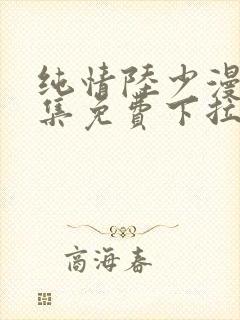 纯情陆少漫
集免费下拉
商海春